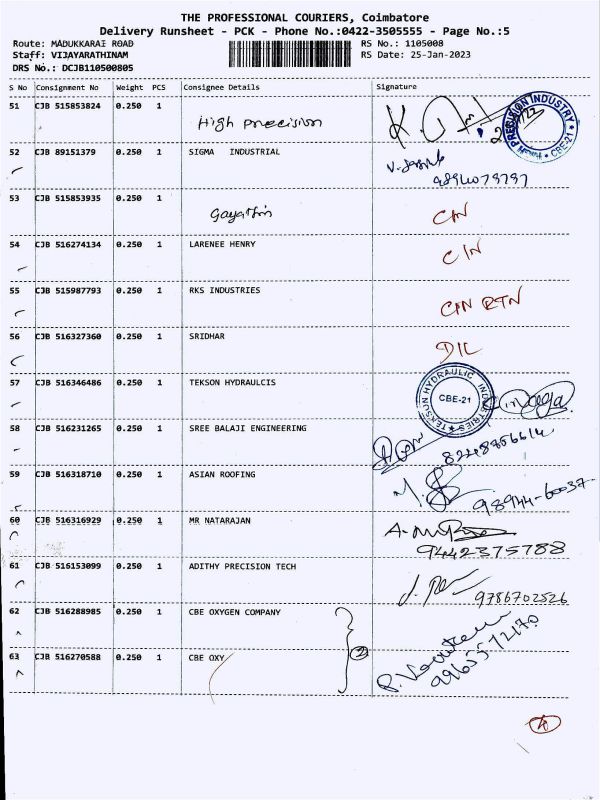 THE PROFESSIONAL COURIERS, Coimbatore
Delivery Runsheet - PCK - Phone No.:0422-3505555 - Page No.:5
Route: MADUKKARAI ROAD RS No.: 1105008
Staff: VIJAYARATHINAM RS Date: 25-Jan-2023
DRS No.: DCJB110500805
S No Consignment No Weight PCS Consignee Details Signature
51 CJB 515853824 0.250 1 High precision
PRECISION INDUSTRY CBE-21
52 CJB 89151379 0.250 1 SIGMA INDUSTRIAL
53 CJB 515853935 0.250 1 Gayathri
54 CJB 516274134 0.250 1 LARENEE HENRY
55 CJB 515987793 0.250 1 RKS INDUSTRIES RTN
56 CJB 516327360 0.250 1 SRIDHAR
57 CJB 516346486 0.250 1 TEKSON HYDRAULCIS
TEKSUN HYDRAULIC INDUSTRIES CBE-21
58 CJB 516231265 0.250 1 SREE BALAJI ENGINEERING
59 CJB 516318710 0.250 1 ASIAN ROOFING
98944-60037
60 CJB 516316929 0.250 1 MR NATARAJAN
9442375788
61 CJB 516153099 0.250 1 ADITHY PRECISION TECH
9786702526
62 CJB 516288985 0.250 1 CBE OXYGEN COMPANY
63 CJB 516270588 0.250 1 CBE OXY 2